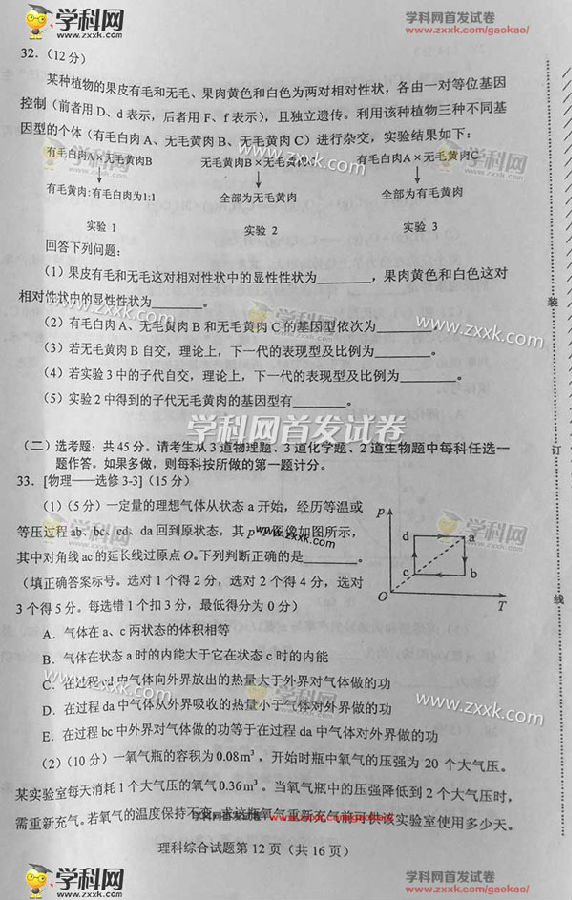 学科网
www.zxxk.com
学科网首发试卷
www.zxxk.com/gaokao/
32.（12分）
某种植物的果皮有毛和无毛、果肉黄色和白色为两对相对性状，各由一对等位基因
控制（前者用D、d表示，后者用F、f表示），且独立遗传。利用该种植物三种不同基
因型的个体（有毛白肉A、无毛黄肉B、无毛黄肉C）进行杂交，实验结果如下：
www.zxxk.com
学科网
有毛白肉A×无毛黄肉B 无毛黄肉B×无毛黄肉 有毛白肉A×无毛黄肉C
有毛黄肉:有毛白肉为1:1 全部为无毛黄肉 全部为有毛黄肉
实验1 实验2 实验3
回答下列问题：
（1）果皮有毛和无毛这对相对性状中的显性性状为________，果肉黄色和白色这对
相对性状中的显性性状为________。
学科网
www.zxxk.com
（2）有毛白肉A、无毛黄肉B和无毛黄肉C的基因型依次为________。
（3）若无毛黄肉B自交，理论上，下一代的表现型及比例为________。
（4）若实验3中的子代自交，理论上，下一代的表现型及比例为________。
（5）实验2中得到的子代无毛黄肉的基因型有________。
学科网首发试卷
（二）选考题：共45分。请考生从3道物理题、3道化学题、2道生物题中每科任选一
题作答。如果多做，则每科按所做的第一题计分。
33.［物理——选修3-3］（15分）
（1）（5分）一定量的理想气体从状态a开始，经历等温或
等压过程ab、bc、cd、da回到原状态，其p 图像如图所示，
www.zxxk.com
其中对角线ac的延长线过原点O。下列判断正确的是________。
（填正确答案标号。选对1个得2分，选对2个得4分，选对
3个得5分。每选错1个扣3分，最低得分为0分）
p
d a
c b
O T
学科网
A．气体在a、c两状态的体积相等
B．气体在状态a时的内能大于它在状态c时的内能
C．在过程cd中气体向外界放出的热量大于外界对气体做的功
D．在过程da中气体从外界吸收的热量小于气体对外界做的功
E．在过程bc中外界对气体做的功等于在过程da中气体对外界做的功
www.zxxk.com
www.zxxk.com
（2）（10分）一氧气瓶的容积为0.08m³，开始时瓶中氧气的压强为20个大气压。
某实验室每天消耗1个大气压的氧气0.36m³。当氧气瓶中的压强降低到2个大气压时，
需重新充气。若氧气的温度保持不变，求这瓶氧气重新充气前可供该实验室使用多少天。
学科网首发试卷
理科综合试题第12页（共16页）
装
订
线
学科网
www.zxxk.com
学科网首发试卷
zxxk.com/gaokao/